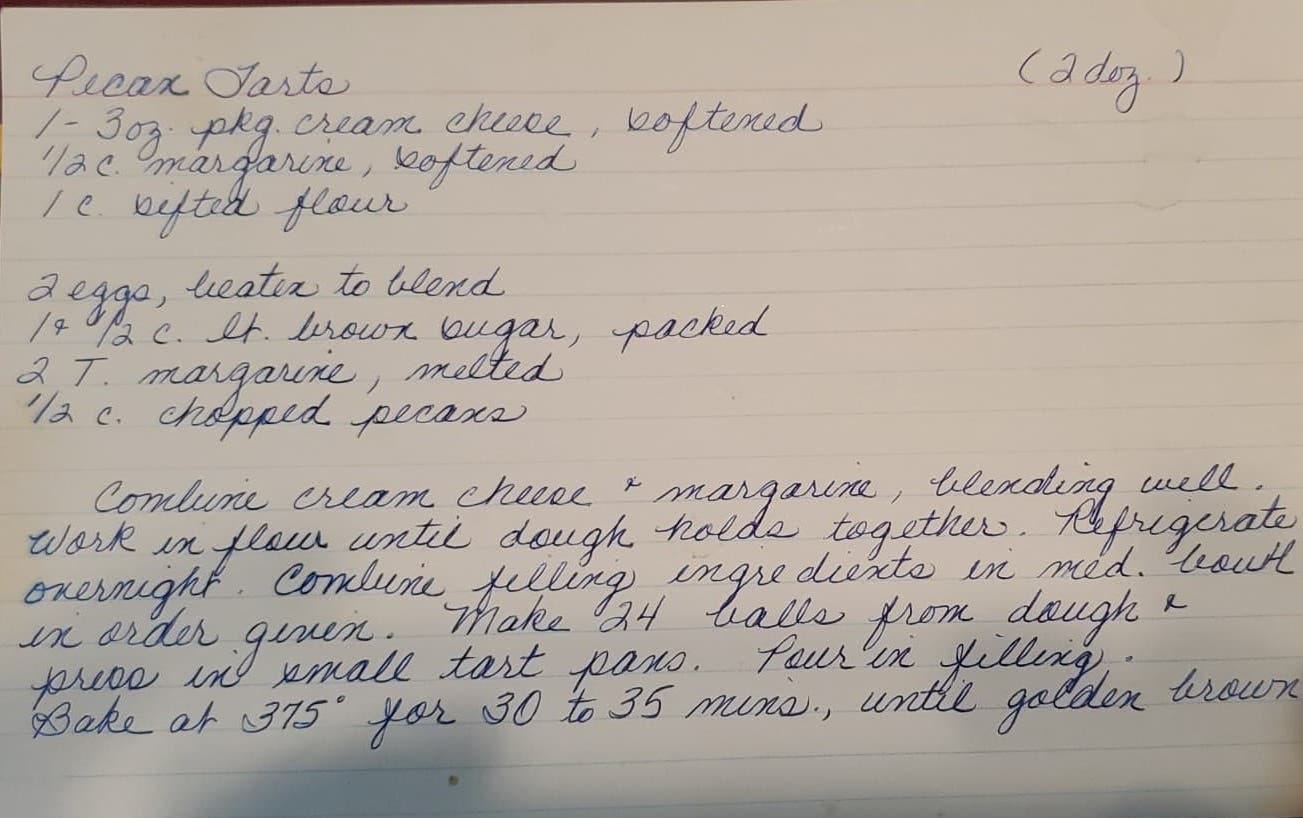 Pecan Tarts (2 doz.)
1- 3 oz. pkg. cream cheese, softened
1/2 c. margarine, softened
1 c. sifted flour
2 eggs, beaten to blend
1 & 1/2 c. lt. brown sugar, packed
2 T. margarine, melted
1/2 c. chopped pecans
Combine cream cheese & margarine, blending well.
Work in flour until dough holds together. Refrigerate
overnight. Combine filling ingredients in med. bowl
in order given. Make 24 balls from dough &
press in small tart pans. Pour in filling.
Bake at 375° for 30 to 35 mins., until golden brown